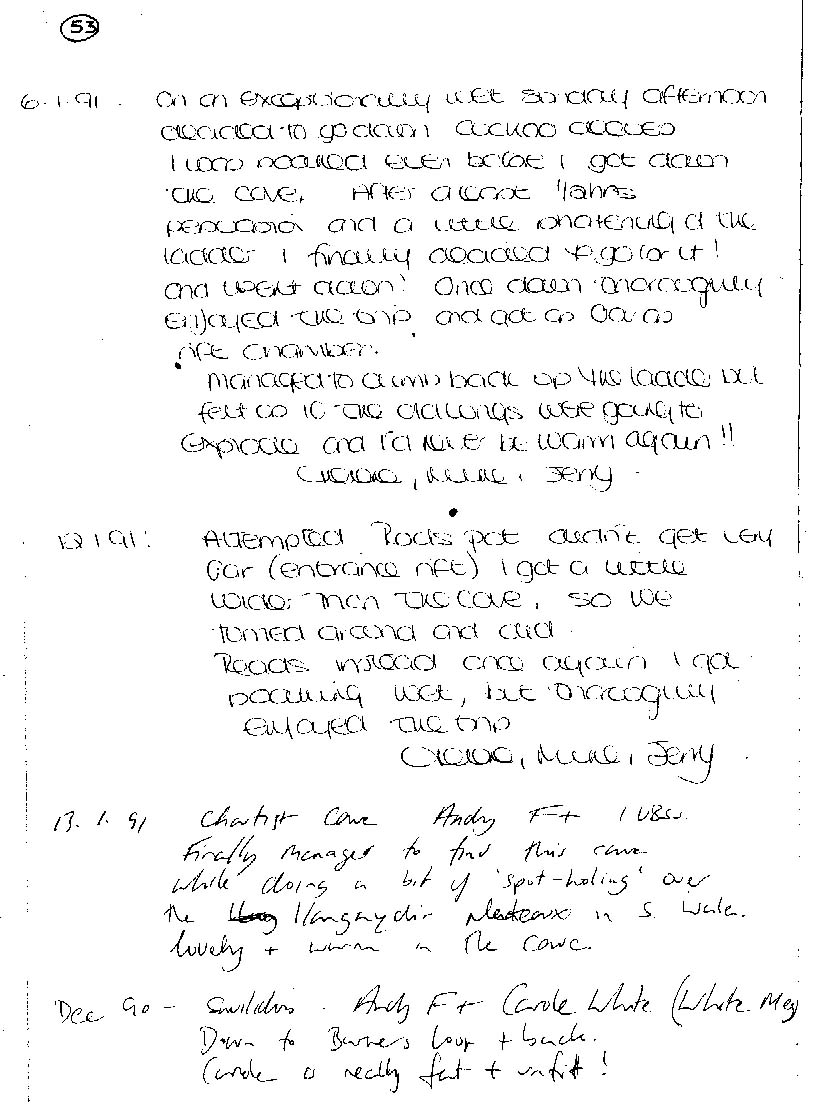 53
6.1.91. On an exceptionally wet Sunday afternoon
decided to go down Cuckoo Cleeves
I was soaked even before I got down
the cave. After about 1/2 hrs
persuasion and a little shortening of the
ladder I finally decided to go for it!
and went down! Once down thoroughly
enjoyed the trip and got as far as
rift chamber.
Managed to climb back up the ladder but
felt as if the
were going to
explode and I'd never be warm again!!
, Mike, Jerry.
12.1.91: Attempted Rods pot didn't get very
far (entrance rift) I got a little
wider than the cave, so we
turned around and did
Reads instead once again I got
soaking wet, but thoroughly
enjoyed the trip
, Mike, Jerry.
13.1.91 Chartist Cave Andy F + 1 UBSS.
Finally managed to find this cave
while doing a bit of 'spot-holing' over
the Llangynydir plateaux in S. Wales.
lovely + warm in the cave.
Dec 90 - Swildons. Andy F + Carole White (White Meg)
Down to Barnes loop + back.
Carole is really fat + unfit!